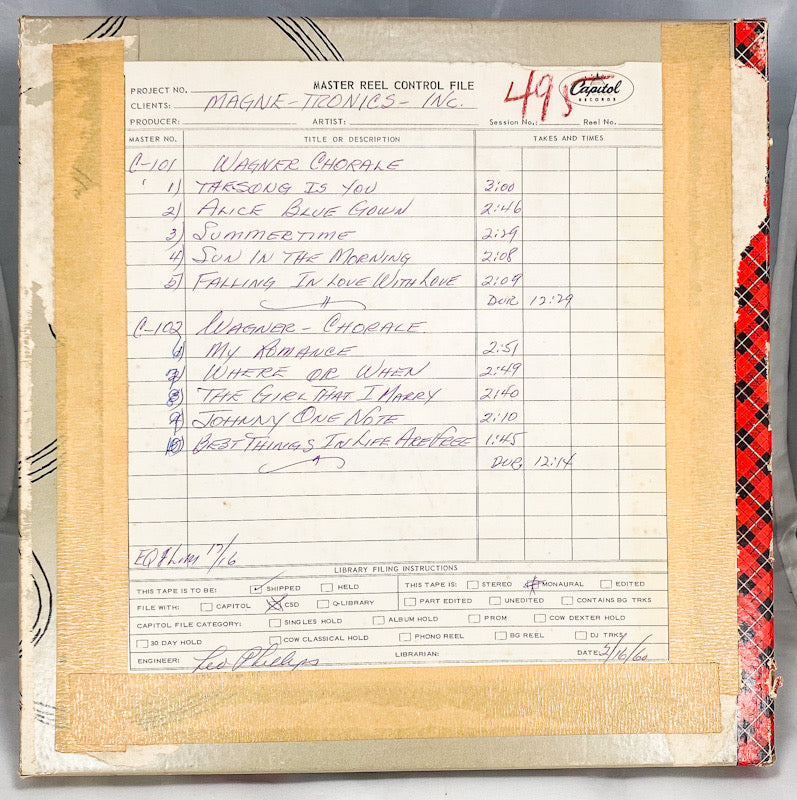 MASTER REEL CONTROL FILE
PROJECT NO. 495 Capitol RECORDS
CLIENTS: MAGNE-TRONICS-INC.
PRODUCER: ARTIST: Session No.: Reel No.
MASTER NO. TITLE OR DESCRIPTION TAKES AND TIMES
C-101 WAGNER CHORALE
1) THESONG IS YOU 3:00
2) ALICE BLUE GOWN 2:46
3) SUMMERTIME 2:29
4) SUN IN THE MORNING 2:08
5) FALLING IN LOVE WITH LOVE 2:09
DUR 12:29
C-102 WAGNER-CHORALE
6) MY ROMANCE 2:51
7) WHERE OR WHEN 2:49
8) THE GIRL THAT I MARRY 2:40
9) JOHNNY ONE NOTE 2:10
10) BEST THINGS IN LIFE ARE FREE 1:45
DUR. 12:14
EQ 17/16
LIBRARY FILING INSTRUCTIONS
THIS TAPE IS TO BE: SHIPPED HELD THIS TAPE IS: STEREO MONAURAL EDITED
FILE WITH: CAPITOL CSD Q-LIBRARY PART EDITED UNEDITED CONTAINS BG TRKS
CAPITOL FILE CATEGORY: SINGLES HOLD ALBUM HOLD PROM COW DEXTER HOLD
30 DAY HOLD COW CLASSICAL HOLD PHONO REEL BG REEL DJ TRKS
ENGINEER: Leo Phillips LIBRARIAN: DATE: 2/16/60